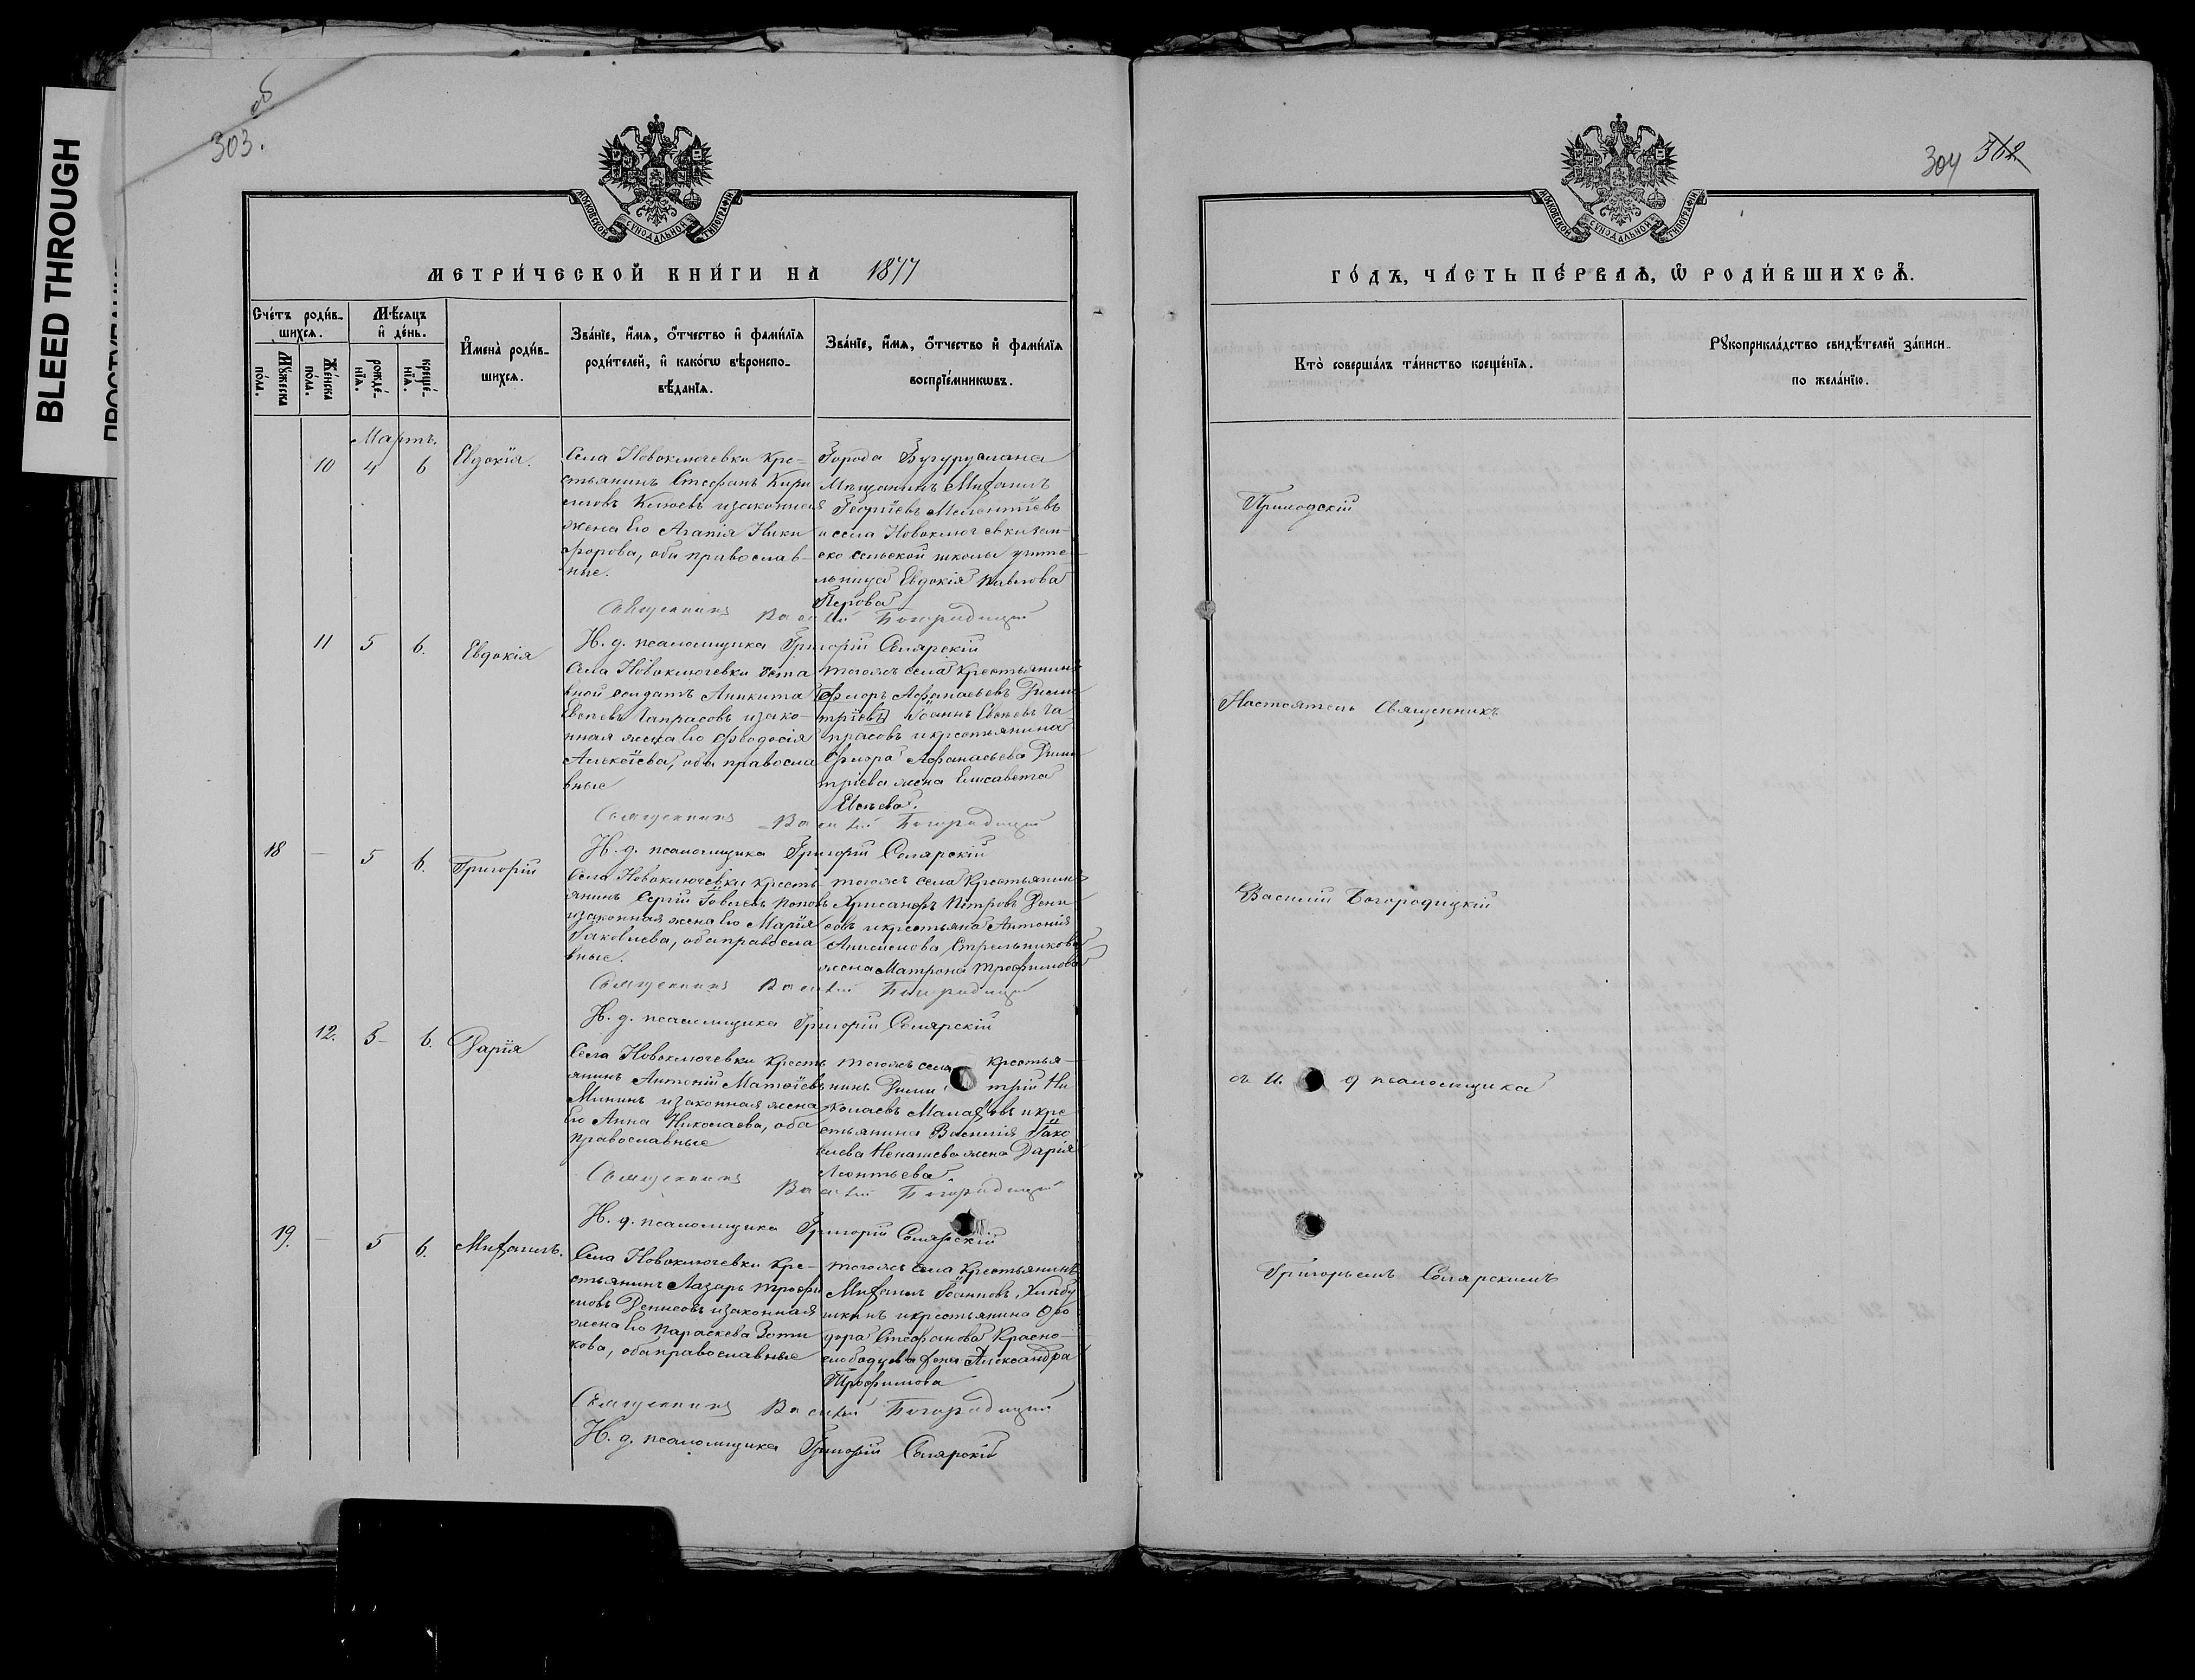 BLEED THROUGH
об
303.
МОСКОВСКОЙ СѴНОДАЛЬНОЙ ТИПОГРАФІИ
МЕТРИ́ЧЕСКОЙ КНИ́ГИ НА 1877
Сче́тъ роди́в-
шихся.
Мѣ́сяцъ
и де́нь.
Му́жеска
по́ла.
Же́нска
по́ла.
рожде́-
нїя.
креще́-
нїя.
И҆мена̀ роди́в-
шихся.
Зва́нїе, и҆́мя, ѻ҆́тчество и҆ фами́лїя
роди́телей, и҆ како́гѡ вѣроиспо-
вѣ́данїя.
Зва́нїе, и҆́мя, ѻ҆́тчество и҆ фами́лїя
воспрїе́мникѡвъ.
Мартъ.
10 4 6 Евдокія.
Села Новоключевки кре-
стьянинъ Стефанъ Кири
ловъ Клюевъ и законная
жена его Агапія Ники
форова, оба православ-
ные.
Города Бугуруслана
Мѣщанинъ Михаилъ
Георгіевъ Мелентіевъ
и села Новоключевки зем-
ско сельской школы учите-
льница Евдокія Павлова
Перова
Священникъ Василій Богородицкій
И. д. псаломщика Григорій Солярскій
11 5 6. Евдокія
Села Новоключевки отста
вной солдатъ Аникита
Евсѣевъ Гапрасовъ и зако-
нная жена его Ѳеодосія
Алексіева, оба правосла
вные
тогожъ села крестьянинъ
Флоръ Аѳанасьевъ Дими
тріевъ Іоаннъ Евсѣевъ Га
прасовъ и крестьянина
Флора Аѳанасьева Дими
тріева жена Елисавета
Евсѣева.
Священникъ Василій Богородицкій
И. д. псаломщика Григорій Солярскій
18 — 5 6. Григорій
Села Новоключевки кресть
янинъ Сергій Іовлевъ Поповъ
и законная жена его Марія
Іаковлева, оба правосла
вные.
тогожъ села крестьянинъ
Хрисанѳъ Петровъ Дени
совъ и крестьяна Антонія
Анисимова Стрельникова
жена Матрона Трофимова
Священникъ Василій Богородицкій
И. д. псаломщика Григорій Солярскій
12. 5 6. Дарія
Села Новоключевки кресть
янинъ Антоній Матѳіевъ
Мининъ и законная жена
его Анна Николаева, оба
православные
тогожъ села крестья-
нинъ Димитрій Ни
колаевъ Малаховъ и кре
стьянина Василія Іако
влева Ненашева жена Дарія
Леонтьева.
Священникъ Василій Богородицкій
И. д. псаломщика Григорій Солярскій
19. — 5 6. Михаилъ.
Села Новоключевки кре-
стьянинъ Лазарь Трофи
мовъ Денисовъ и законная
жена его Параскева Зоти
кова, оба православные
тогожъ села крестьянинъ
Михаилъ Іоанновъ Хлѣбу
шкинъ и крестьянина Ѳео
дора Стефанова Красно-
слободцева дочь Александра
Трофимова
Священникъ Василій Богородицкій
И. д. псаломщика Григорій Солярскій
304 302
МОСКОВСКОЙ СѴНОДАЛЬНОЙ ТИПОГРАФІИ
ГО́ДЪ, ЧА́СТЬ ПЕ́РВАЯ, Ѡ҆ РОДИ́ВШИХСЯ.
Кто̀ соверша́лъ та́инство креще́нїя.
Рꙋкоприкла́дство свидѣ́телей за́писи
по жела́нїю.
Приходскій
Настоятель Священникъ
Василій Богородицкій
съ И. д псаломщика
Григорьемъ Солярскимъ